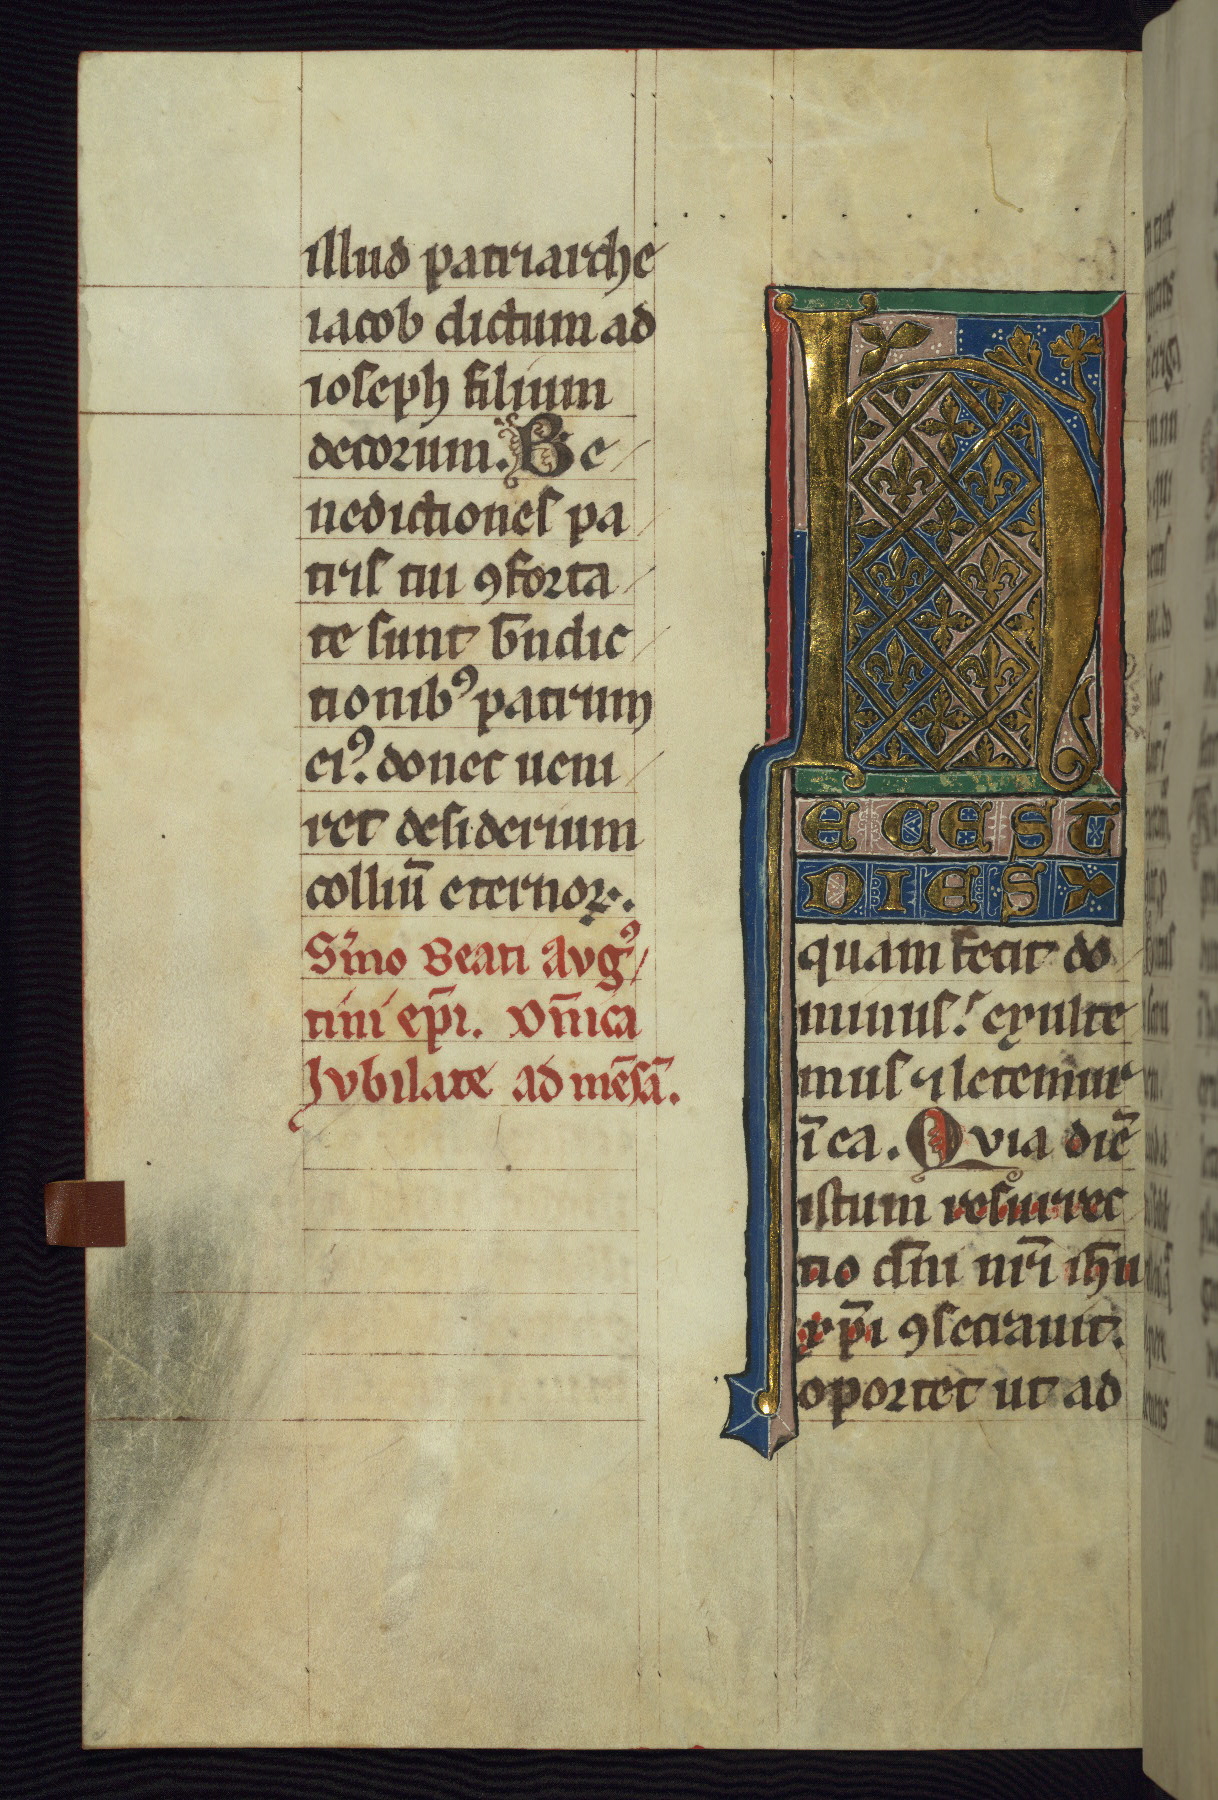 illud patriarche
iacob dictum ad
ioseph filium
decorum. Be
nedictiones pa
tris tui ꝯforta
te sunt b̄ndic
tionibꝰ patrum
eiꝰ. donec ueni
ret desiderium
colliū eternoꝝ.
Sm̄o Beati Augꝰ
tini ep̄i. Dn̄ica
Jubilate ad mēsā.
H
EC EST
DIES
quam fecit do
minus. exulte
mus ⁊ letemur
ī ea. Quia diē
istum resurrec
tio dn̄i nr̄i ih̄u
xp̄i ꝯsecrauit.
oportet ut ad